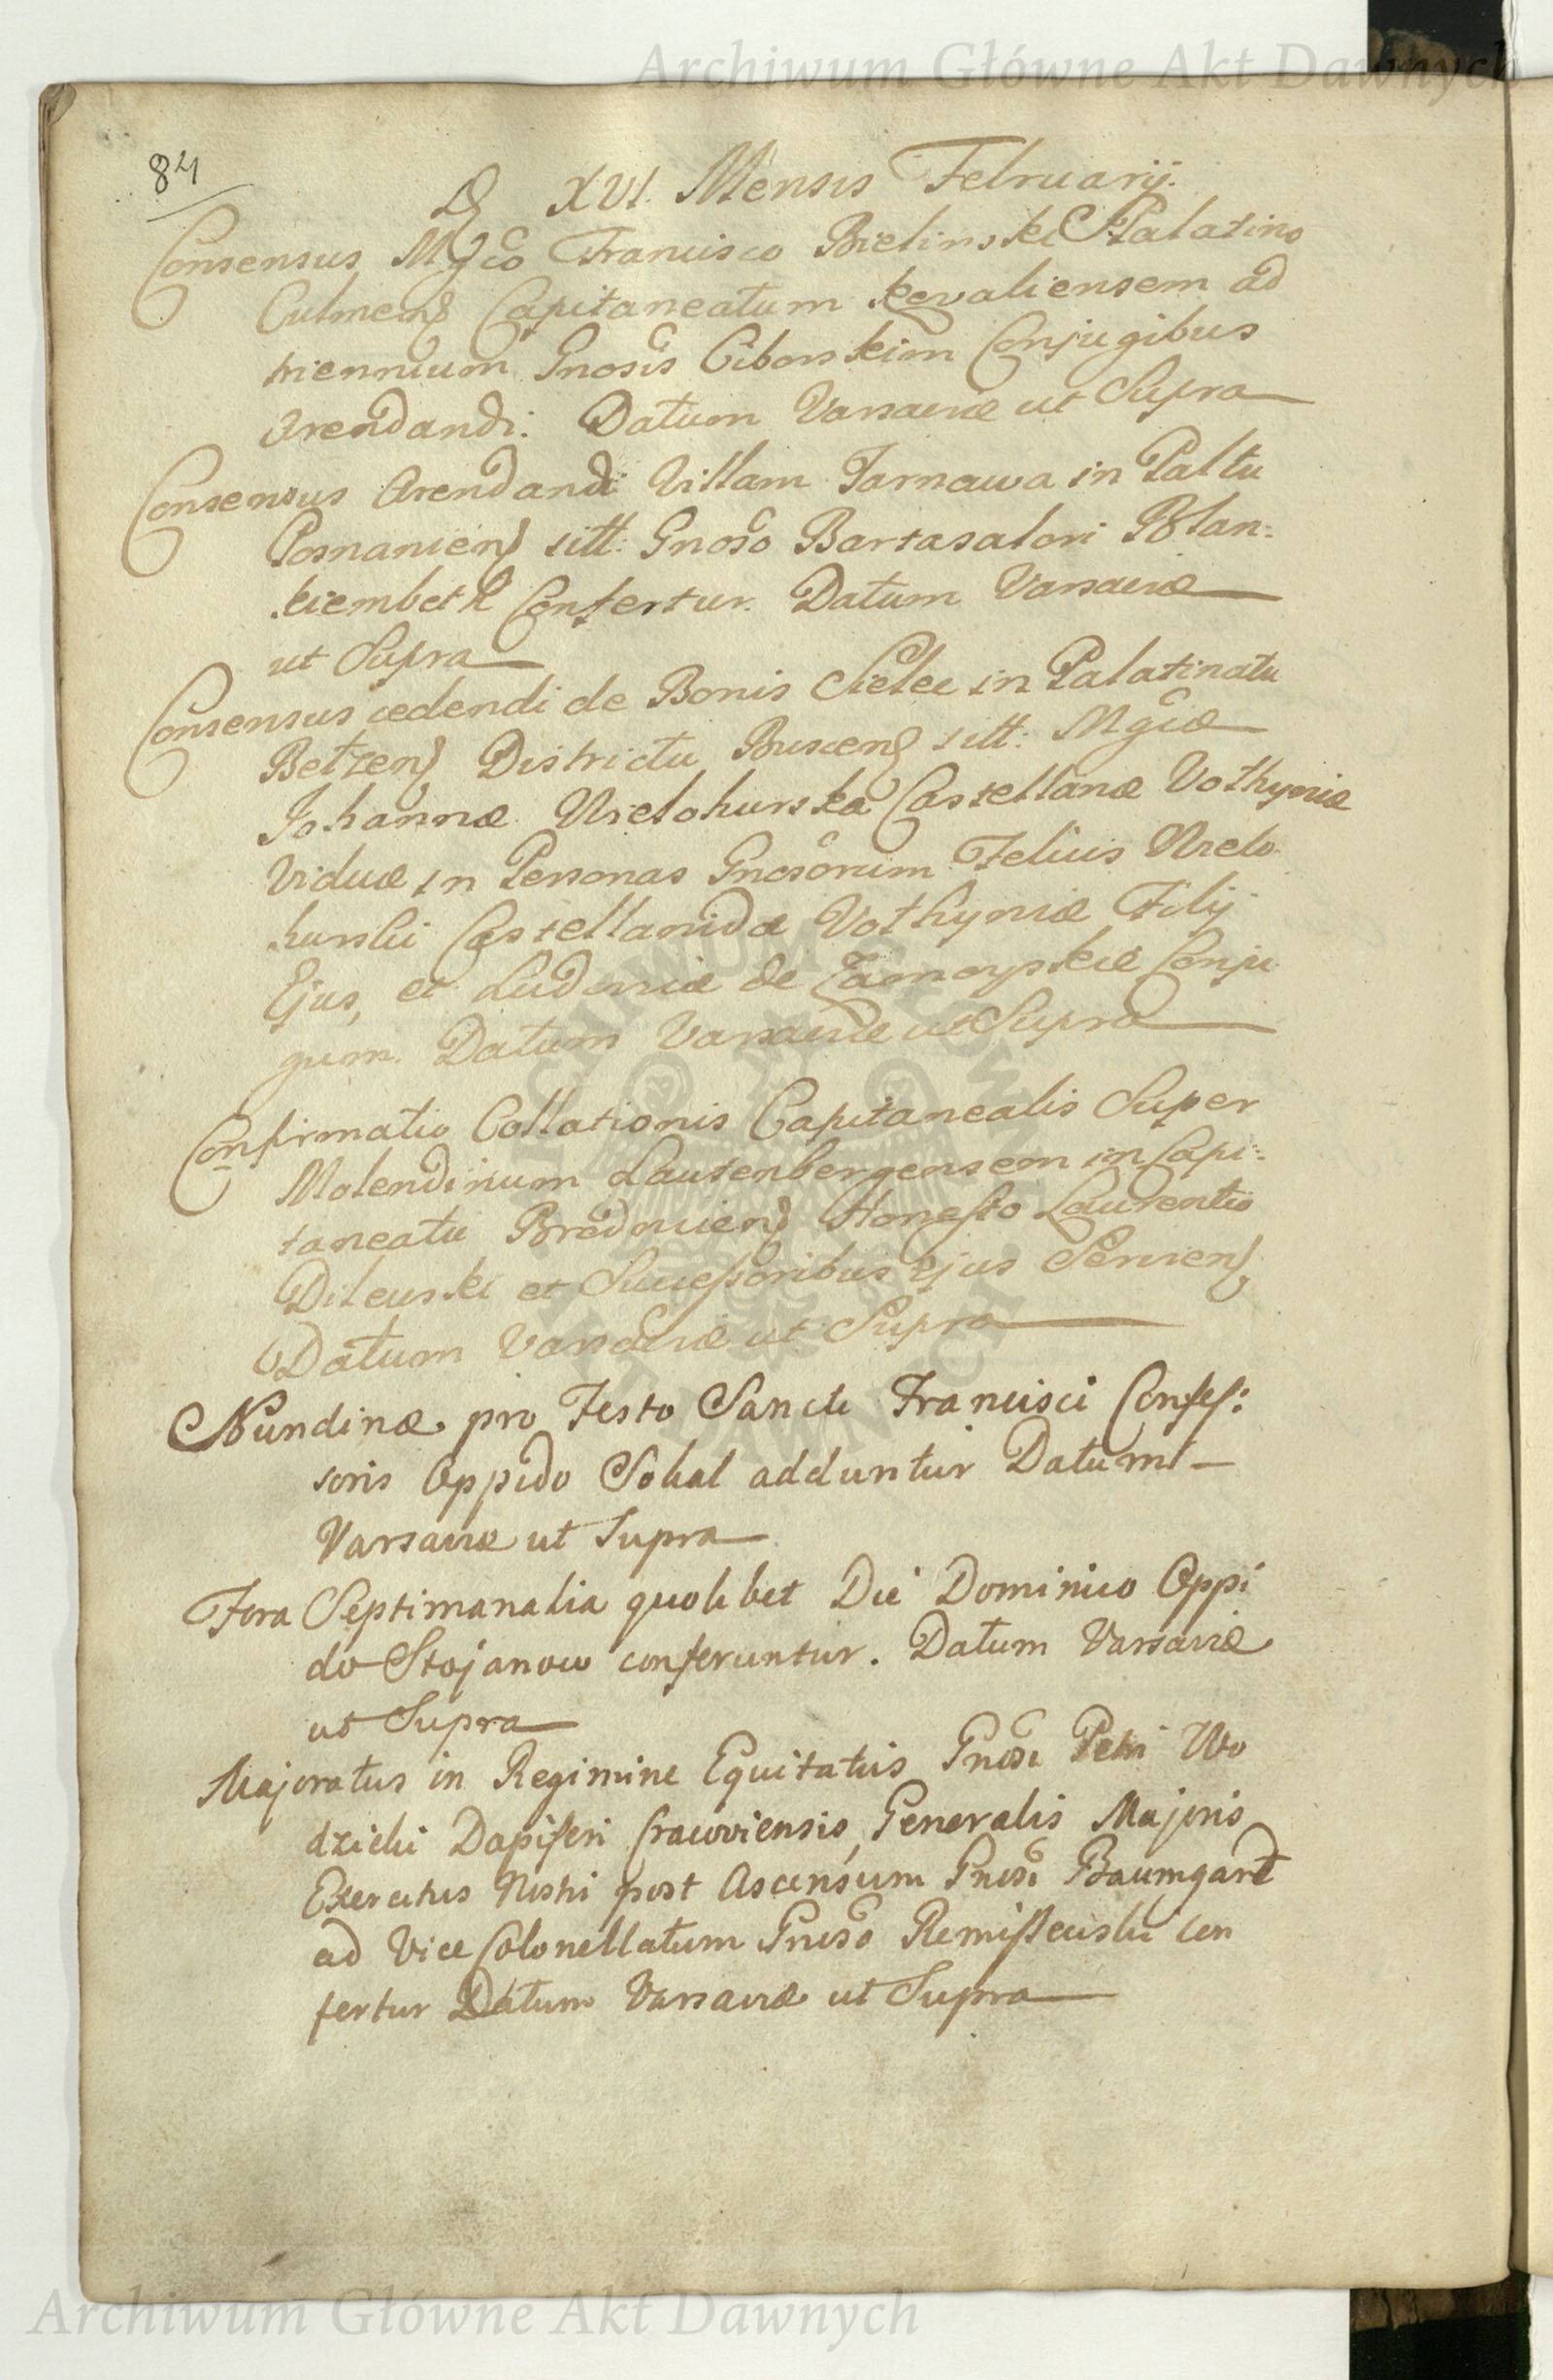 Archiwum Główne Akt Dawnych
84
D XVI. Mensis Februarij.
Consensus Mgco Francisco Bielinski Palatino
Culmens Capitaneatum kovaliensem ad
triennium Gnosis Ciborskim Conjugibus
Arendandi: Datum Varsaviæ ut Supra
Consensus Arendandi Villam Tarnawa in Paltu
Posnaniens sitt: Gnoso
kiembeth Confertur. Datum Varsaviæ
ut Supra
Consensus cedendi de Bonis Sielec in Palatinatu
Betzens Districtu Buscens sitt: Mgcæ
Johannæ Wielohurska Castellanæ Volhyniæ
Viduæ in Personas Gnosorum Felicis Wielo
hurski Castellanidæ Volhyniæ Filij
Ejus, et Ludoviæ de Zamoyskie Conju
gum. Datum Varsaviæ ut Supra
Confirmatio Collationis Capitanealis Super
Molendinum Lautenbergensem in Capi:
taneatu Brodnicens Honesto Laurentio
Dilewski et Successoribus Ejus Serviens
Datum Varsaviæ ut Supra
Nundinæ pro Festo Sancti Francisci Confes:
soris Oppido Sokal adduntur Datum
Varsaviæ ut Supra
Fora Septimanalia quolibet Die Dominico Oppi
do Stojanow conferuntur. Datum Varsaviæ
ut Supra
Majoratus in Regimine Equitatus Gnosi Petri Wo
dzicki Dapiferi Cracoviensis, Generalis Majoris
Exercitus Nostri post Ascensum Gnosi Baumgard
ad Vice Colonellatum Gnoso Remiszewski con
fertur Datum Varsaviæ ut Supra
Archiwum Główne Akt Dawnych